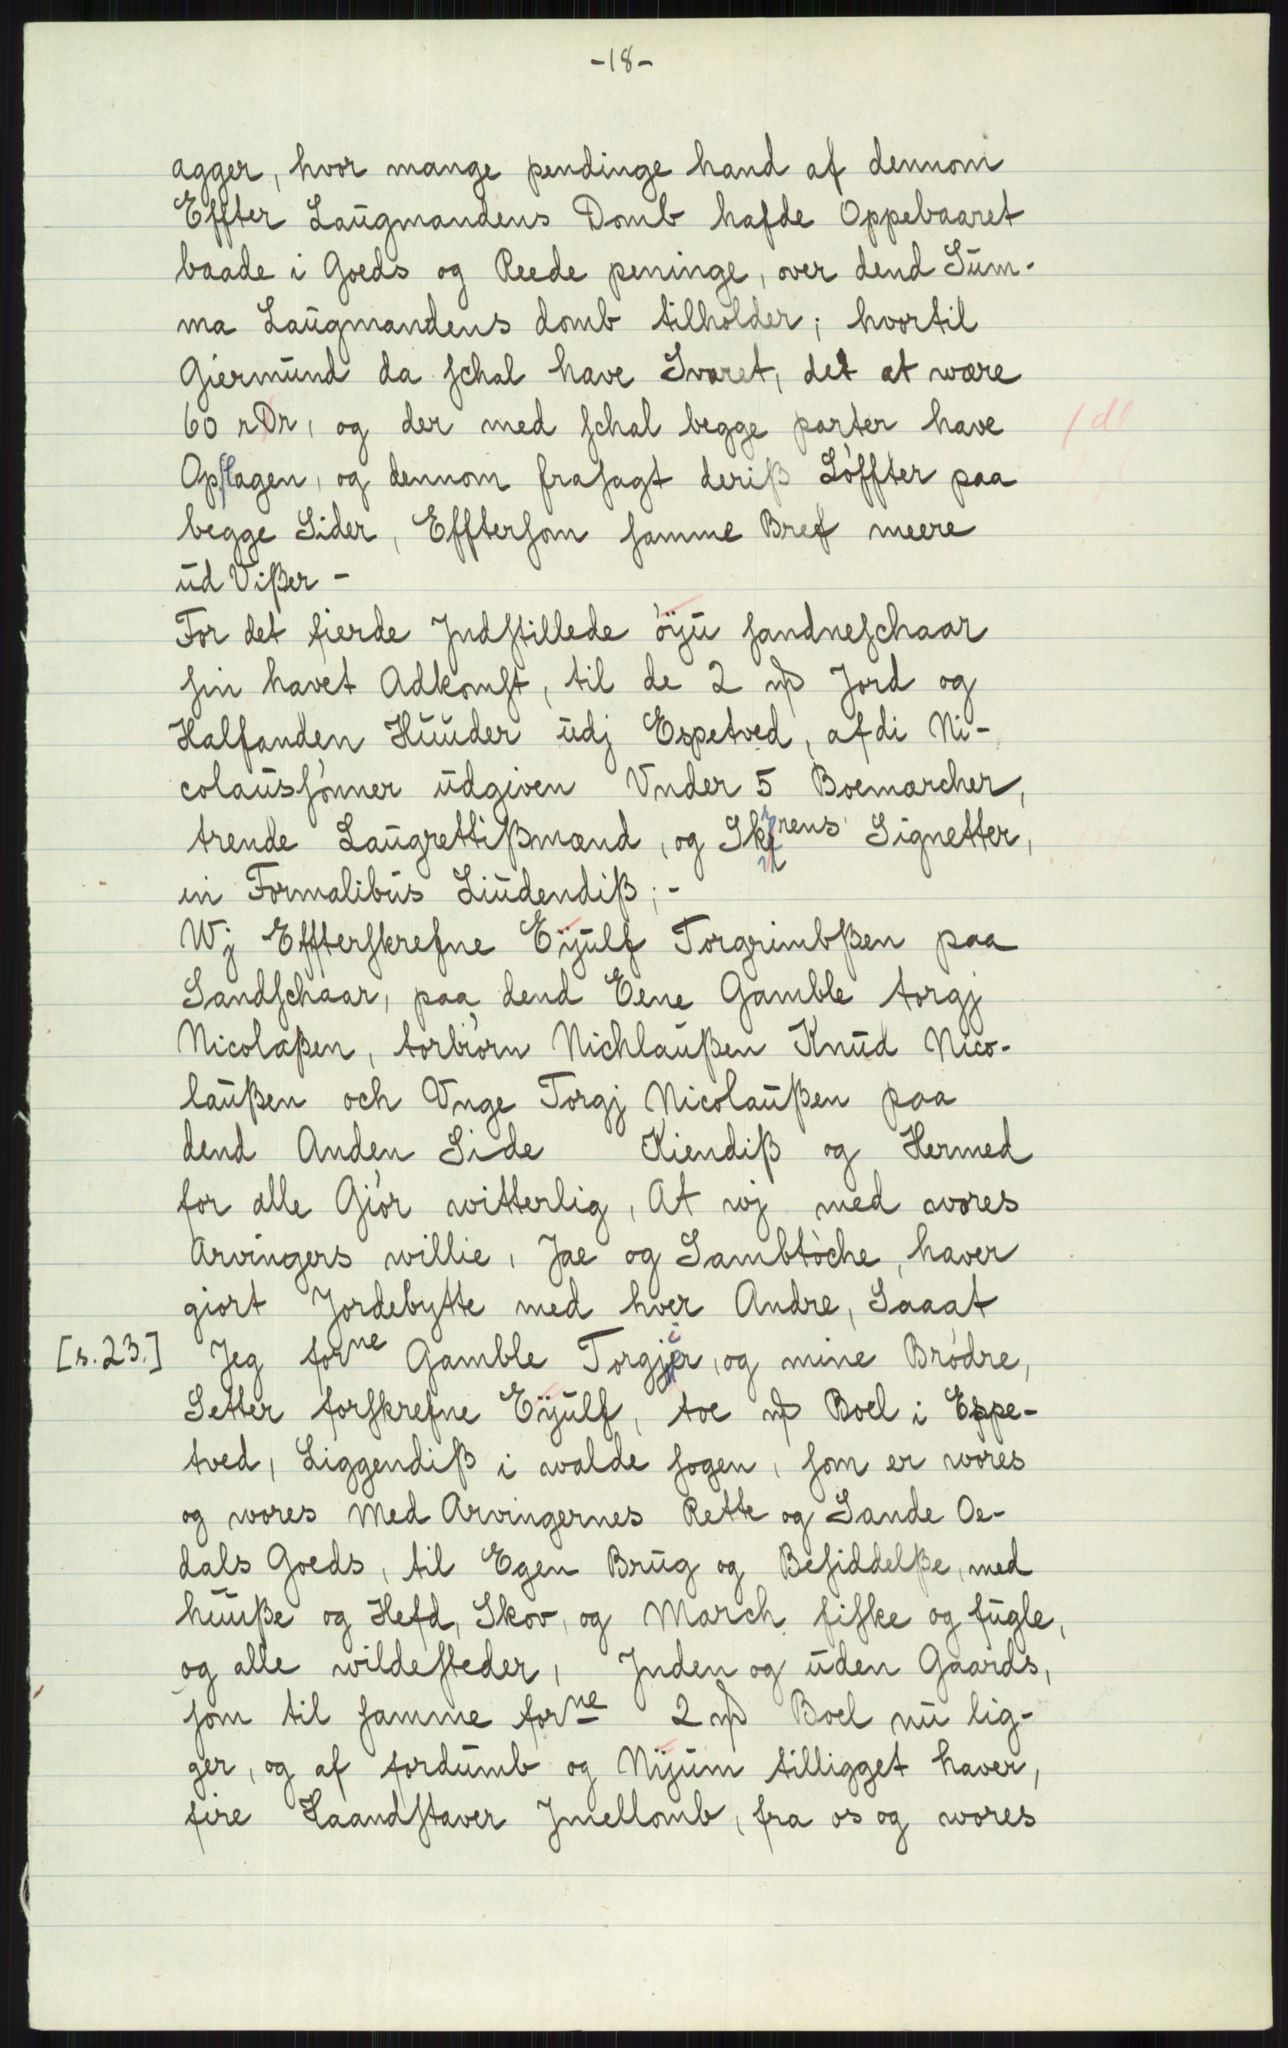 -18-
agger, hvor mange pendinge hand af dennom
Effter Laugmandens Domb hafde Oppebaaret
baade i Goeds og Reede peninge, over dend Sum-
ma Laugmandens domb tilholder; hvortil
Giermund da schal have Svaret, det at wære
60 rDr, og der med schal begge parter have
/ dl
Opslagen, og dennom frasagt deriß Løffter paa
begge Sider, Efftersom samme Bref meere
ud Vißer -
For det fierde Jndstillede øÿu sandneschaar
sin havet Adkomst, til de 2 Jord og
Halfanden Huuder udj Espetved, afdi Ni-
colausønner udgiven Vnder 5 Boemarcher,
trende Laugrettißmænd, og Signetter,
in Formalibus Liudendiß; -
Wj Effterskrefne Eÿulf Torgrimbßen paa
Sandschaar, paa dend Eene Gamble torgj
Nicolaßen, torbiørn Nichlaußen Knud Nico-
laußen och Vnge Torgj Nicolaußen paa
dend Anden Side Kiendiß og Hermed
for alle Giør witterlig, At wj med wores
Arvingers willie, Jae og Sambtøche, haver
giort Jordebytte med hver Andre, Saaat
[s. 23.] Jeg forne Gamble Torgjer, og mine Brødre,
Setter forskrefne Eÿulf, toe Boel i Espe-
tved, Liggendiß i walde sogen, som er wores
og wores Med Arvingernes Rette og Sande Oe-
dals Goeds, til Egen Brug og Besiddelße, med
huuße og Hefd, Skov, og March fiske og fugle,
og alle wildesteder, Jnden og uden Gaards,
som til samme forne 2 Boel nu lig-
ger, og af fordumb og Nÿum tilligget haver,
fire Laandstaver Jmellomb, fra os og wores